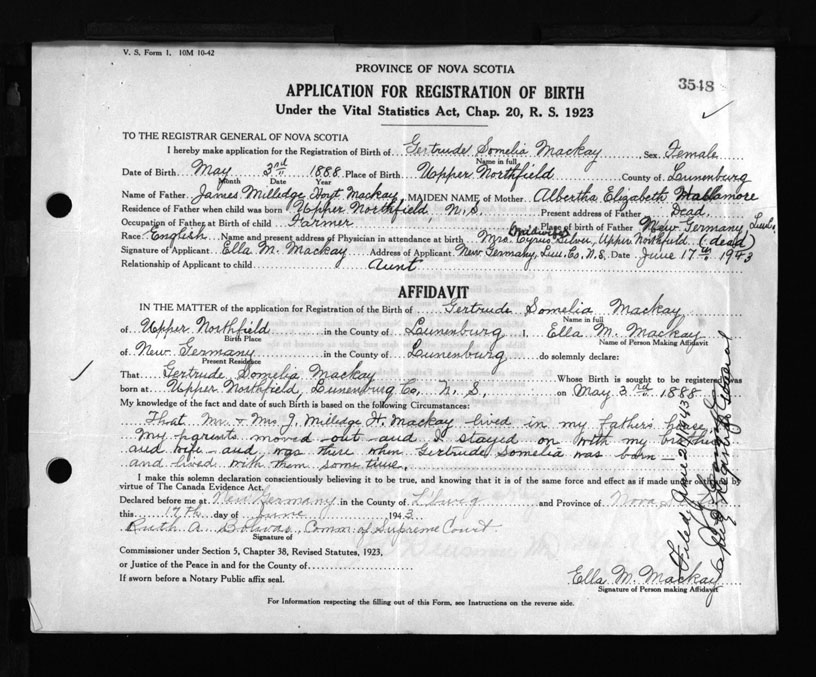 V. S. Form 1. 10M 10-42
PROVINCE OF NOVA SCOTIA
3548
APPLICATION FOR REGISTRATION OF BIRTH
Under the Vital Statistics Act, Chap. 20, R. S. 1923
TO THE REGISTRAR GENERAL OF NOVA SCOTIA
I hereby make application for the Registration of Birth of Gertrude Somelia Mackay Sex Female
Name in full
Date of Birth May 3rd 1888 Place of Birth Upper Northfield County of Lunenburg
Month Date Year
Name of Father James Milledge Hoyt Mackay MAIDEN NAME of Mother Albertha Elizabeth
Residence of Father when child was born Upper Northfield, N.S. Present address of Father Dead
Occupation of Father at Birth of child Farmer Place of birth of Father New Germany
Race English Name and present address of Physician in attendance at birth Midwife Mrs. Cyrus Silver, Upper Northfield (dead)
Signature of Applicant Ella M. Mackay Address of Applicant New Germany, Lun. Co, N.S. Date June 17th 1943
Relationship of Applicant to child Aunt
AFFIDAVIT
IN THE MATTER of the application for Registration of the Birth of Gertrude Somelia Mackay
Name in full
of Upper Northfield in the County of Lunenburg I, Ella M. Mackay
Birth Place Name of Person Making Affidavit
of New Germany in the County of Lunenburg do solemnly declare:
Present Residence
That Gertrude Somelia Mackay Whose Birth is sought to be registered was
born at Upper Northfield, Lunenburg Co, N. S. on May 3rd 1888
My knowledge of the fact and date of such Birth is based on the following Circumstances:
That Mr & Mrs J. Milledge H. Mackay lived in my fathers house.
My parents moved out and I stayed on with my brother
and wife and was there when Gertrude Somelia was born —
and lived with them some time.
I make this solemn declaration conscientiously believing it to be true, and knowing that it is of the same force and effect as if made under oath by
virtue of The Canada Evidence Act.
Declared before me at New Germany in the County of L'burg and Province of Nova
this 17th day of June 1943.
Ruth A. Comm. of Supreme Court
Signature of
Commissioner under Section 5, Chapter 38, Revised Statutes, 1923,
or Justice of the Peace in and for the County of
If sworn before a Notary Public affix seal.
Ella M. Mackay
Signature of Person making Affidavit
For Information respecting the filling out of this Form, see Instructions on the reverse side.
Filed June 1943
Registrar General